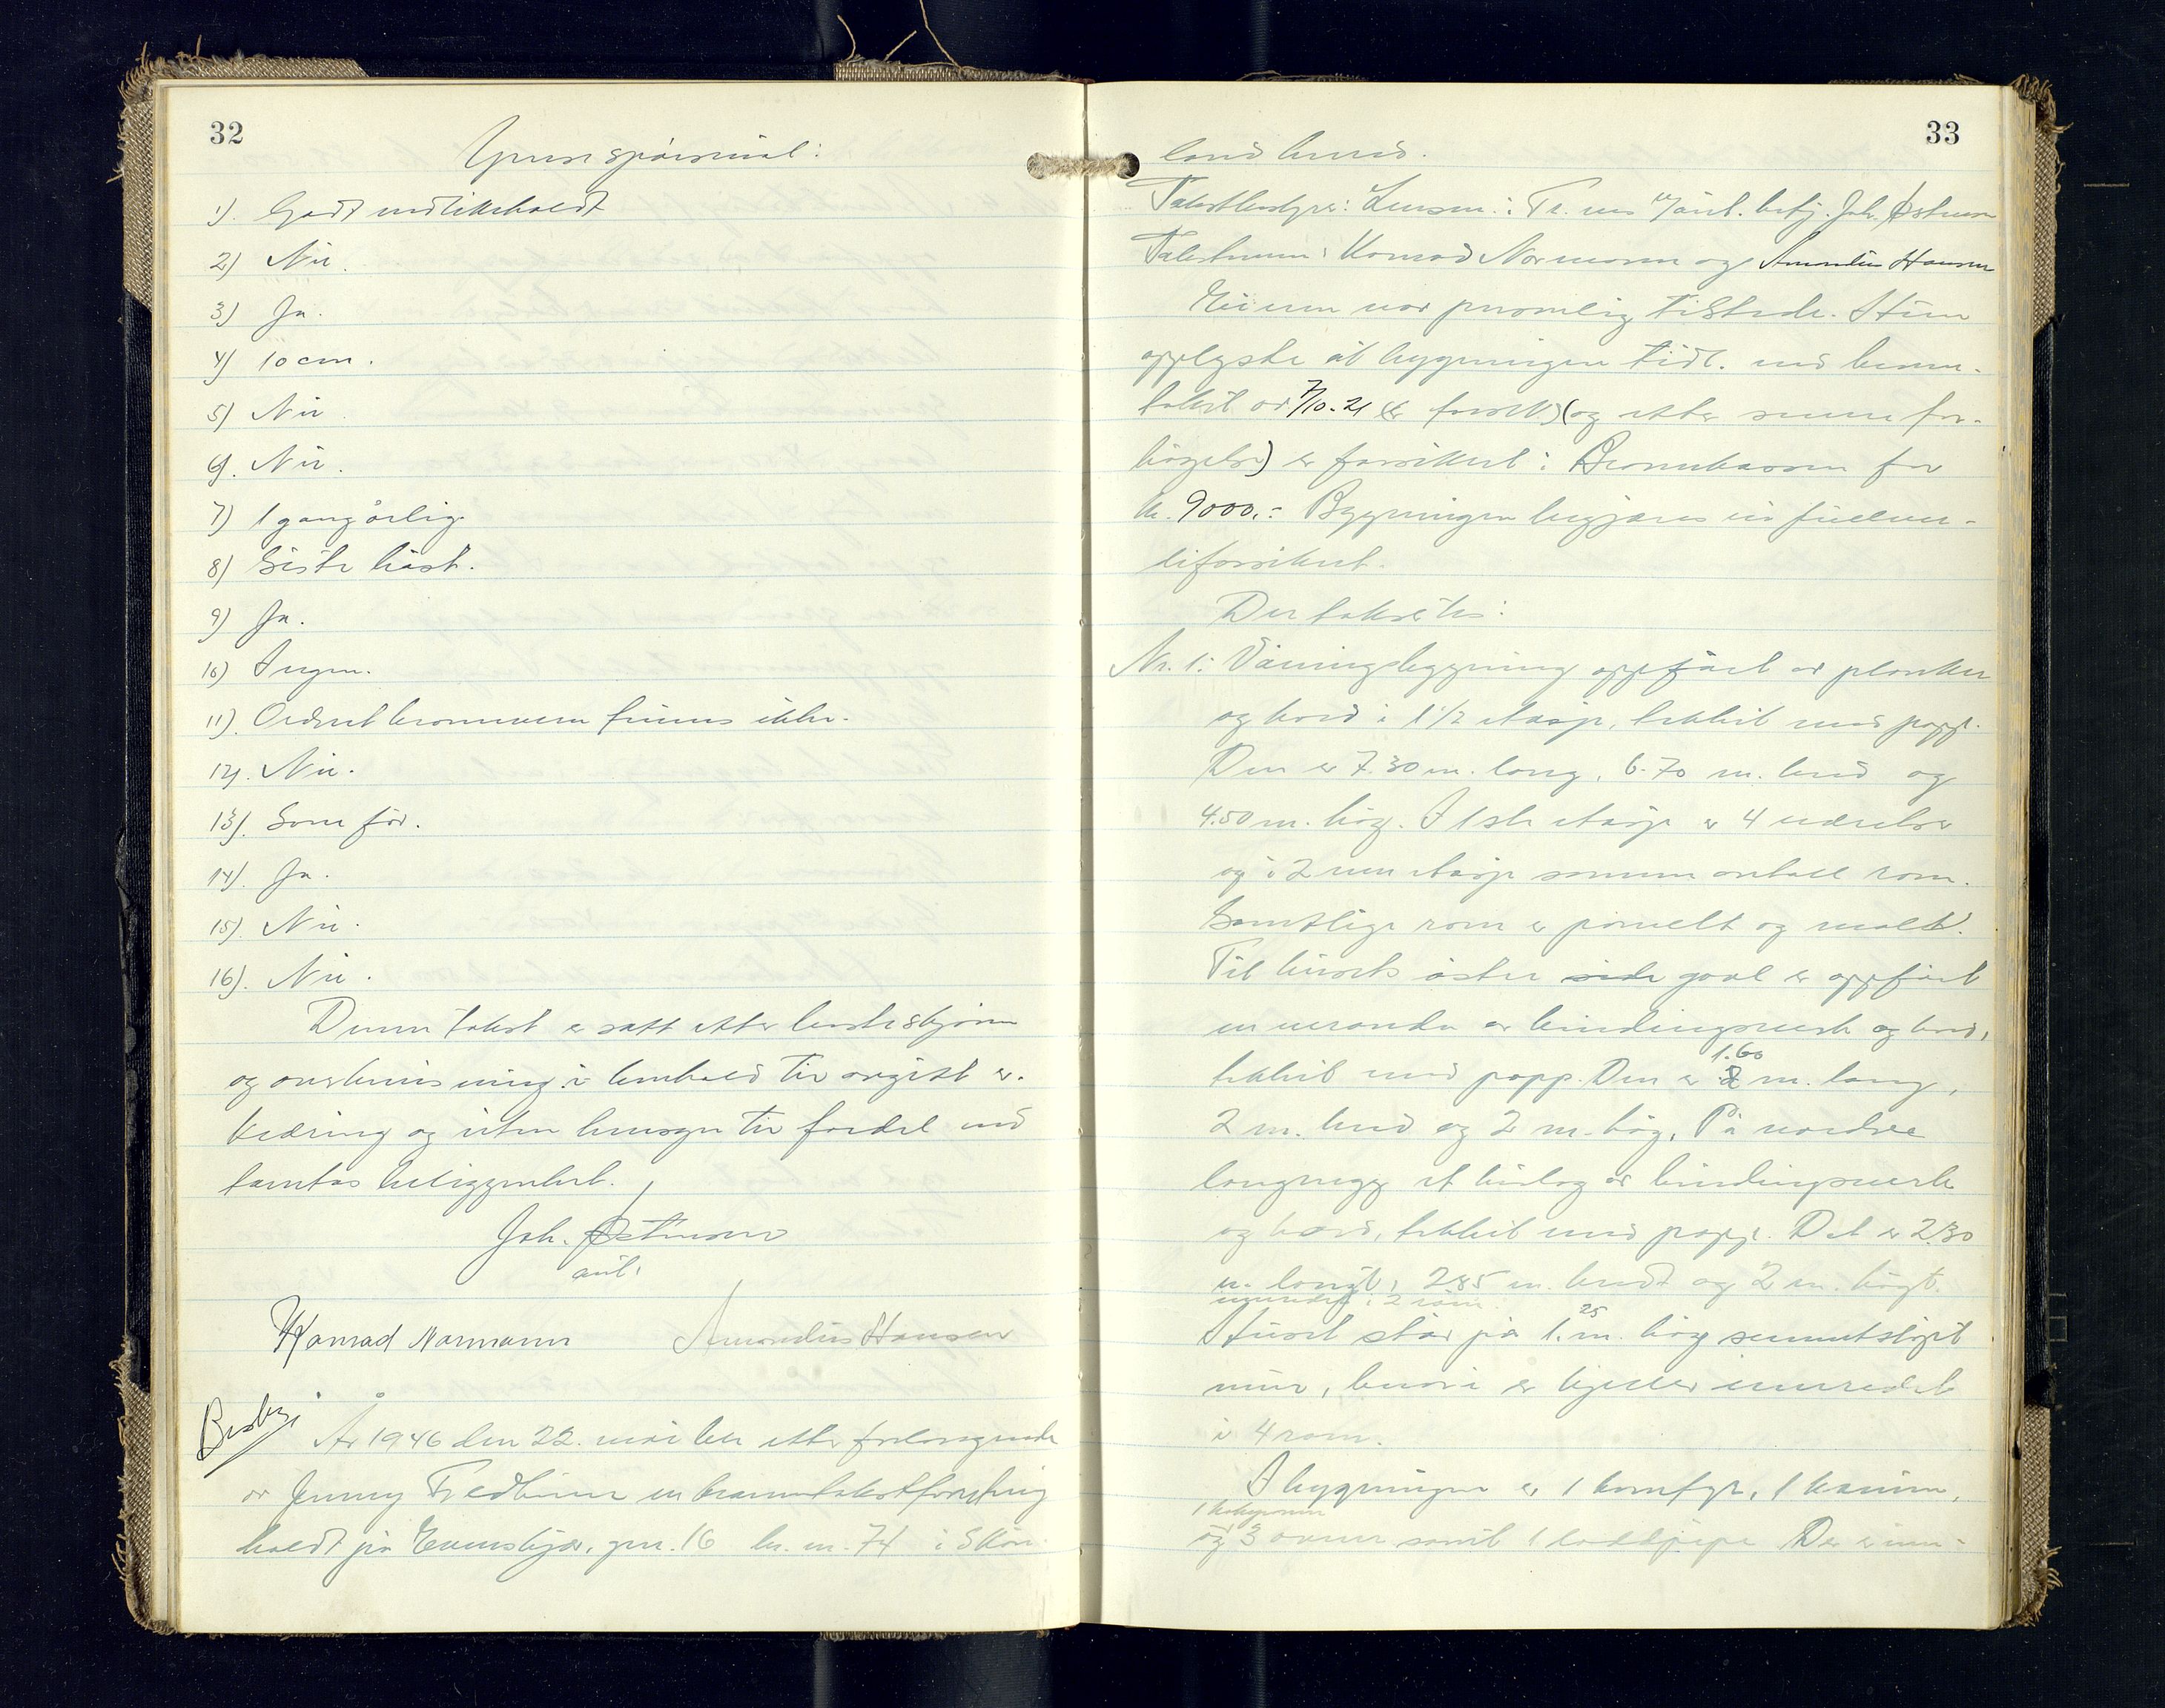 32
Grunnspørsmål:
1). Godt vedlikeholdt
2) Nei.
3) Ja.
4) 10 cm.
5) Nei
6). Nei.
7) 1 gang årlig
8) Siste høst.
9) Ja.
10) Ingen.
11). Ordnet brannvern finnes ikke.
12). Nei.
13). Som før.
14). Ja.
15). Nei.
16). Nei.
Denne takst er satt etter beste skjønn
og overbevisning i henhold til avgitt er-
klæring og uten hensyn til fordel ved
tomtas beliggenhet.
Joh. Østensen
aut.
Konrad Normann Amandus Hansen
År 1946 den 22. mai ble etter forlangende
av Jenny Fredheim en branntakstforretning
holdt på Evenskjær, gnr. 16 br. nr. 74 i Skån-
33
land herred.
Takstbestyrer: Lensm. i Tr. ved aut. betj. Joh. Østensen
Takstmenn: Konrad Normann og Amandus Hansen
Eieren var personlig tilstede. Hun
opplyste at bygningen tidl. ved brann-
takst av 7/10-21 (og etter senere for-
høyelse) er forsikret i Brannkassen for
kr. 9000.- Bygningen begjæres nå fullver-
diforsikret.
Der takseres:
Nr. 1: Våningsbygning oppført av planker
og bord i 1 1/2 etasje, tekket med papp.
Den er 7.30 m. lang, 6.70 m. bred og
4.50 m. høg. I 1ste etasje er 4 værelser
og i 2nen etasje samme antall rom.
Samtlige rom er panelt og malt.
Til husets østre side gavl er oppført
en veranda av bindingsverk og bord,
tekket med papp. Den er 1.60 m. lang,
2 m. bred og 2 m. høg. På nordre
langvegg et bislag av bindingsverk
og bord, tekket med papp. Det er 2.30
m. langt, 2.85 m. bredt og 2 m. høgt.
innredet i 2 rom.
Huset står på 1.25 m. høg sementstøpt
mur, hvori er kjeller innredet
i 4 rom.
I bygningen er 1 komfyr, 1 kamin,
og 3 ovner samt 1 loddpipe Der er inn-